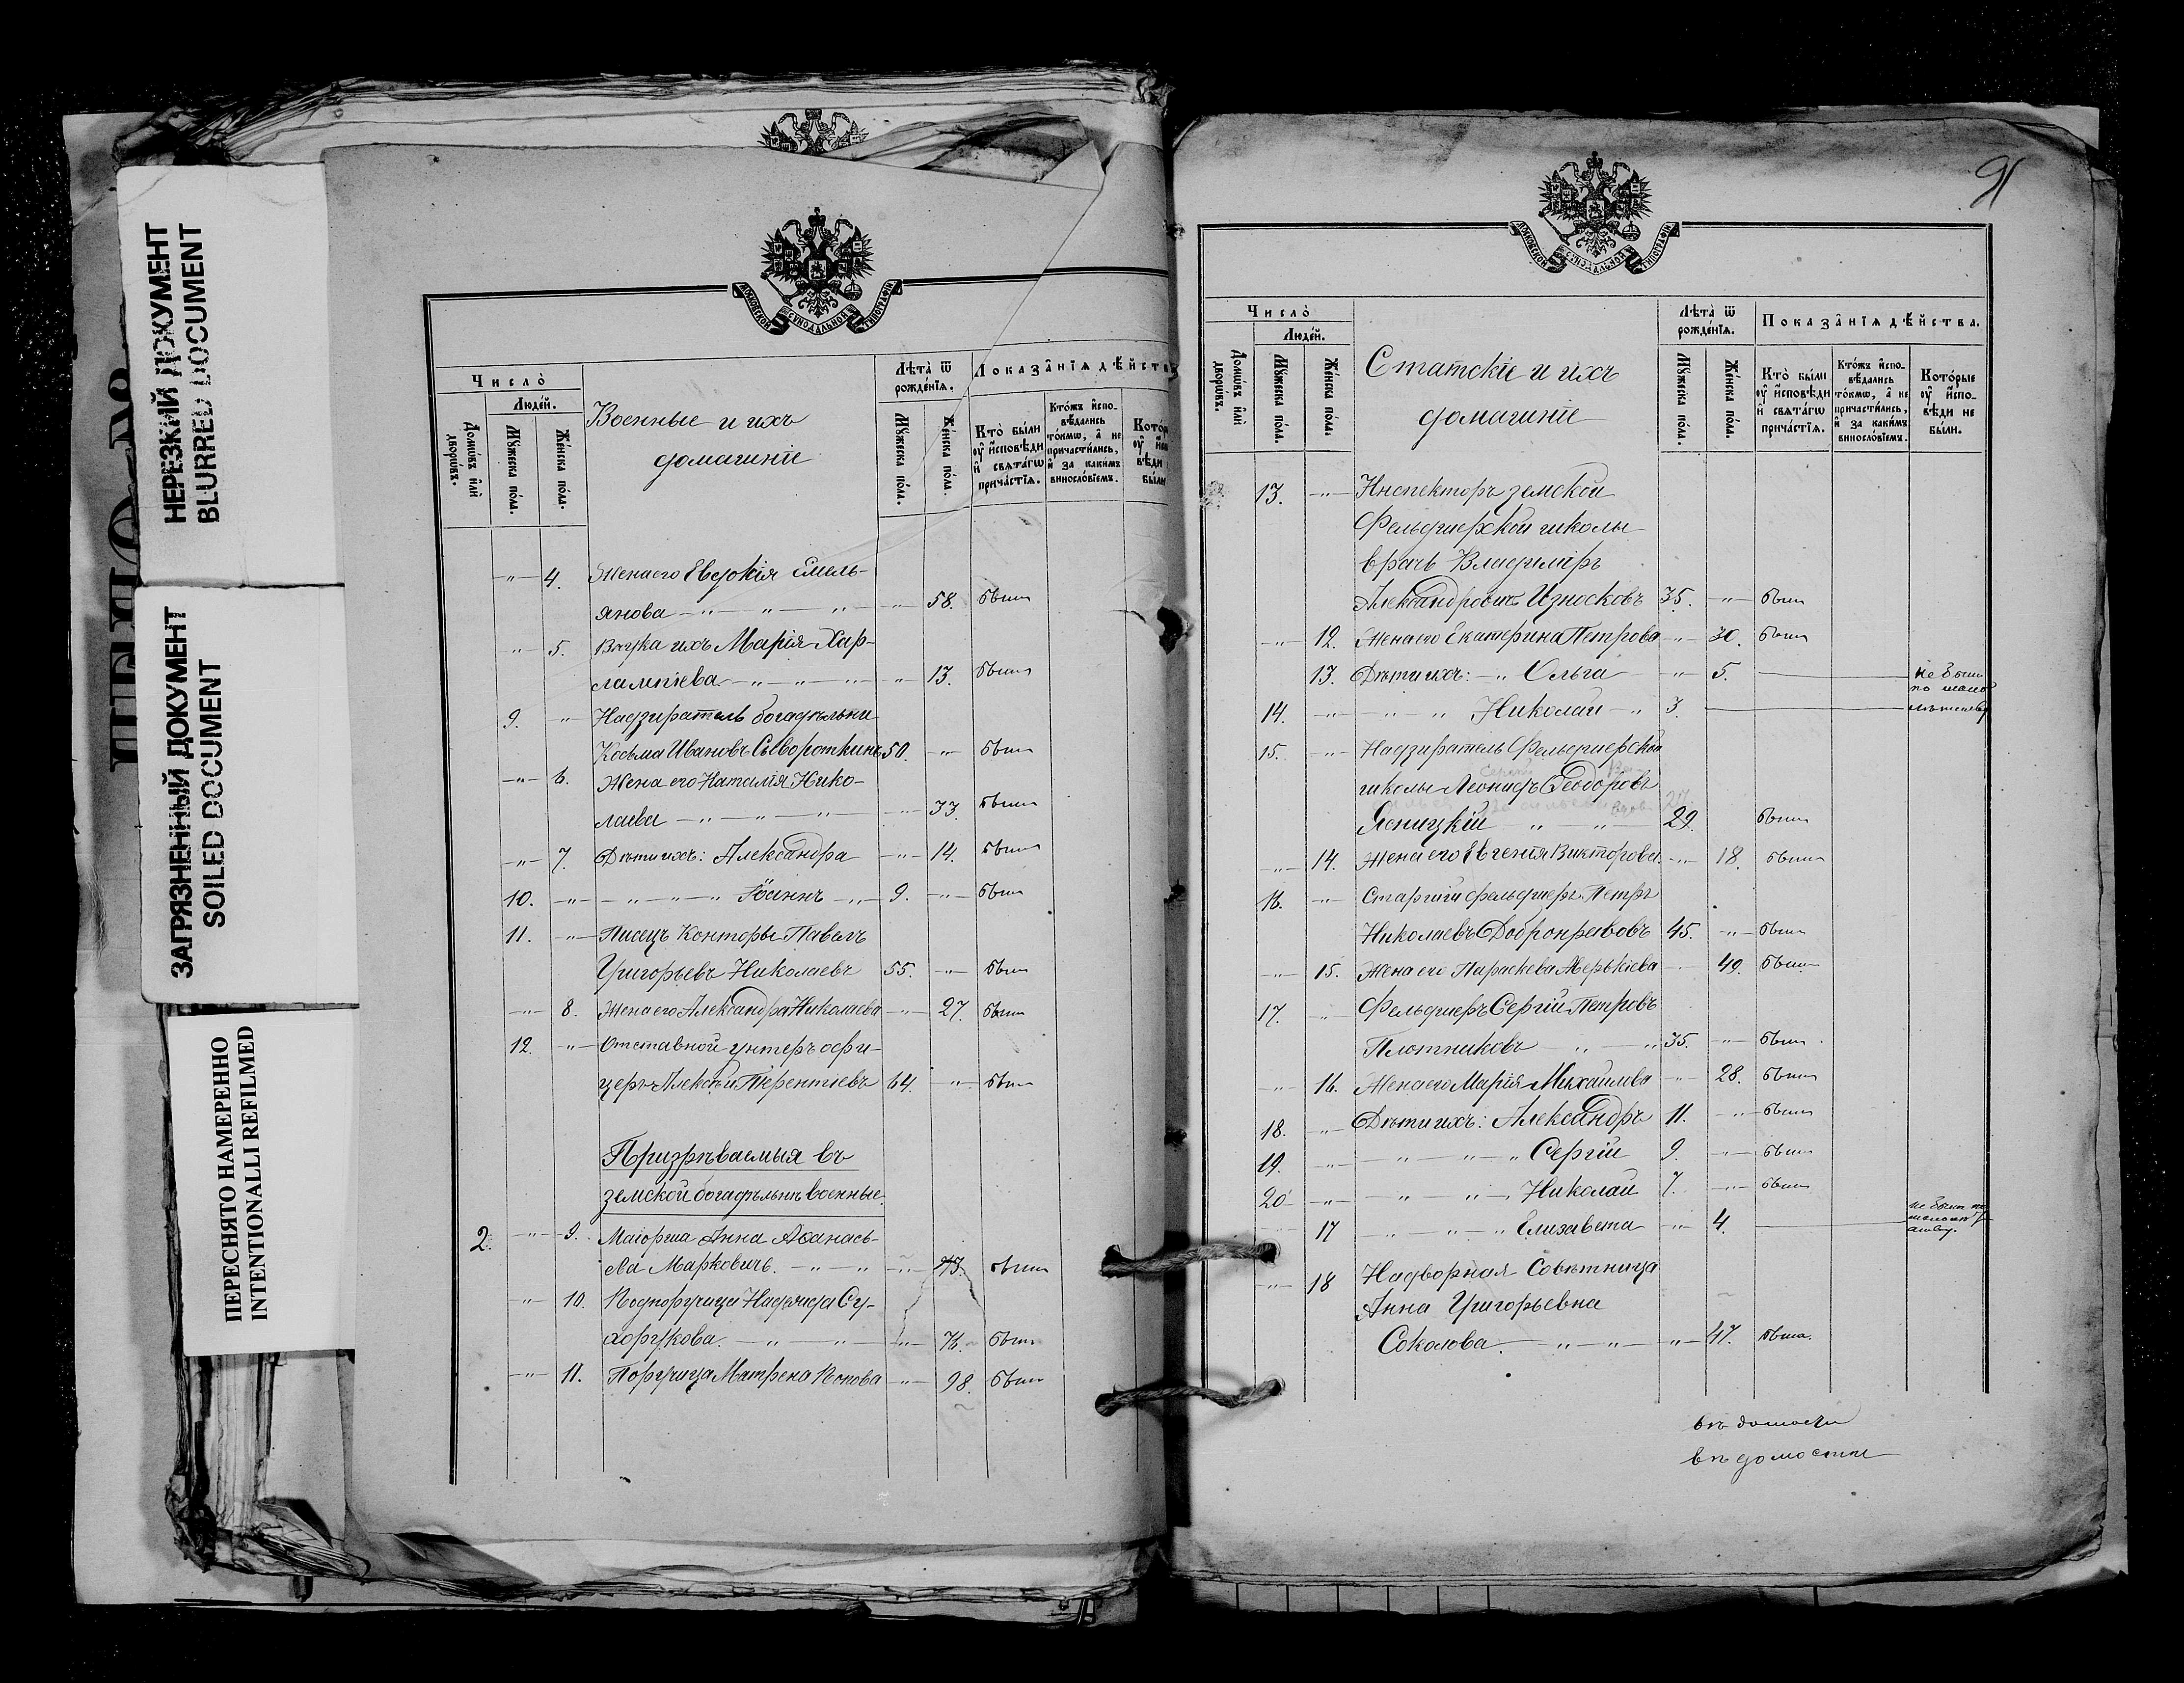 НЕРЕЗКИЙ ДОКУМЕНТ
BLURRED DOCUMENT
ЗАГРЯЗНЕННЫЙ ДОКУМЕНТ
SOILED DOCUMENT
ПЕРЕСНЯТО НАМЕРЕННО
INTENTIONALLI REFILMED
МОСКОВСКОЙ СѴНОДАЛЬНОЙ ТИПОГРАФІИ
Число̀
Людéй.
Домѡ́въ и҆лѝ дворѡ́въ.
Мꙋ́жеска по́ла.
Же́нска по́ла.
Военные и ихъ
домашніе
Лѣ́та ѿ рожде́нїѧ.
Мꙋ́жеска по́ла.
Же́нска по́ла.
Показа̂нїѧ дѣ́йств
Кто̀ бы́ли
ᲂу҆ и҆сповѣди
и҆ свѧта́гѡ
прича́стїѧ.
Кто́жъ и҆спо-
вѣдались
то́кмѡ, а҆ не
причасти́лись,
и҆ за каки́мъ
винословїемъ.
-"- 4. Жена его Евдокія Емель-
янова -"- " " -"- 58. были
-"- 5. Внука ихъ Марія Хар-
лампіева -"- " -"- " 13. были
9. -"- Надзиратель богадѣльни
Косьма Ивановъ Сывороткинъ 50. -"- были
-"- 6. Жена его Наталія Нико-
лаева -"- " -"- -"- 33. были
-"- 7. Дѣти ихъ: Александра -"- 14. были
10. -"- -"- " -"- Іоаннъ -"- 9. -"- были
11. -"- Писецъ Конторы Павелъ
Григорьевъ Николаевъ 55. -"- были
-"- 8. Жена его Александра Николаева -"- 27. были
12. -"- Отставной унтеръ офи-
церъ Алексѣй Терентіевъ 64. " были
Призрѣваемыя въ
земской богадѣльнѣ военные.
2. -"- 9. Маіорша Анна Аѳанась-
ева Марковичъ. -"- " -"- 73. были
-"- 10. Подпоручица Надежда Су-
хорукова. -"- " -"- 76. были
-"- 11. Поручица Матрена Попова -"- 98. были
91
МОСКОВСКОЙ СѴНОДАЛЬНОЙ ТИПОГРАФІИ
Число̀
Людéй.
Домѡ́въ и҆лѝ дворѡ́въ.
Мꙋ́жеска по́ла.
Же́нска по́ла.
Статскіе и ихъ
домашніе
Лѣ́та ѿ рожде́нїѧ.
Мꙋ́жеска по́ла.
Же́нска по́ла.
Показа̂нїѧ дѣ́йства.
Кто̀ бы́ли
ᲂу҆ и҆сповѣди
и҆ свѧта́гѡ
прича́стїѧ.
Кто́жъ и҆спо-
вѣдались
то́кмѡ, а҆ не
причасти́лись,
и҆ за каки́мъ
винословїемъ.
Кото́рые
ᲂу҆ и҆спо-
вѣди не
бы́ли.
13. -"- Инспекторъ земской
Фельдшерской школы
врачъ Владиміръ
Александровичъ Износковъ 35. -"- были
-"- 12. Жена его Екатерина Петрова -"- 30. были
13. Дѣти ихъ: -"- Ольга -"- 5. не были
14. -"- " -"- Николай -"- 3. по мало
15. -"- Надзиратель Фельдшерской
школы Леонидъ Ѳеодоровъ
Ясницкій " -"- 29. были
-"- 14. Жена его Евгенія Викторова. -"- 18. были
16. -"- Старшій фельдшеръ Петръ
Николаевъ Добронравовъ 45. -"- были
-"- 15. Жена его Параскева Меркіева -"- 49. были
17. -"- Фельдшеръ Сергій Петровъ
Плотниковъ " -"- 35. -"- были.
-"- 16. Жена его Марія Михайлова -"- 28. были
18. -"- Дѣти ихъ: Александръ 11. -"- были
19. -"- " -"- Сергій 9. -"- были
20 -"- " -"- Николай 7. -"- были
17 -"- " -"- Елизавета -"- 4. не были
-"- 18 Надворная Совѣтница
Анна Григорьевна
Соколова. -"- -"- -"- 47. была.
вѣдомости
вѣдомости